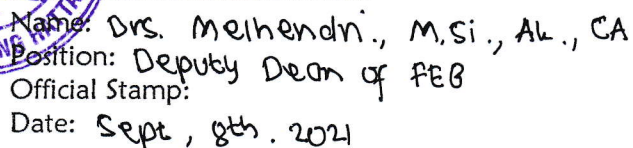 Name: Drs. Melhendri., M.Si., Ak., CA
Position: Deputy Dean of FEB
Official Stamp:
Date: Sept, 8th. 2021